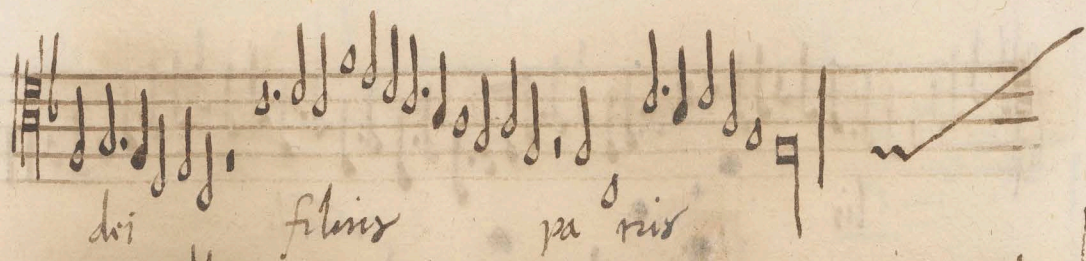 dei filius patris